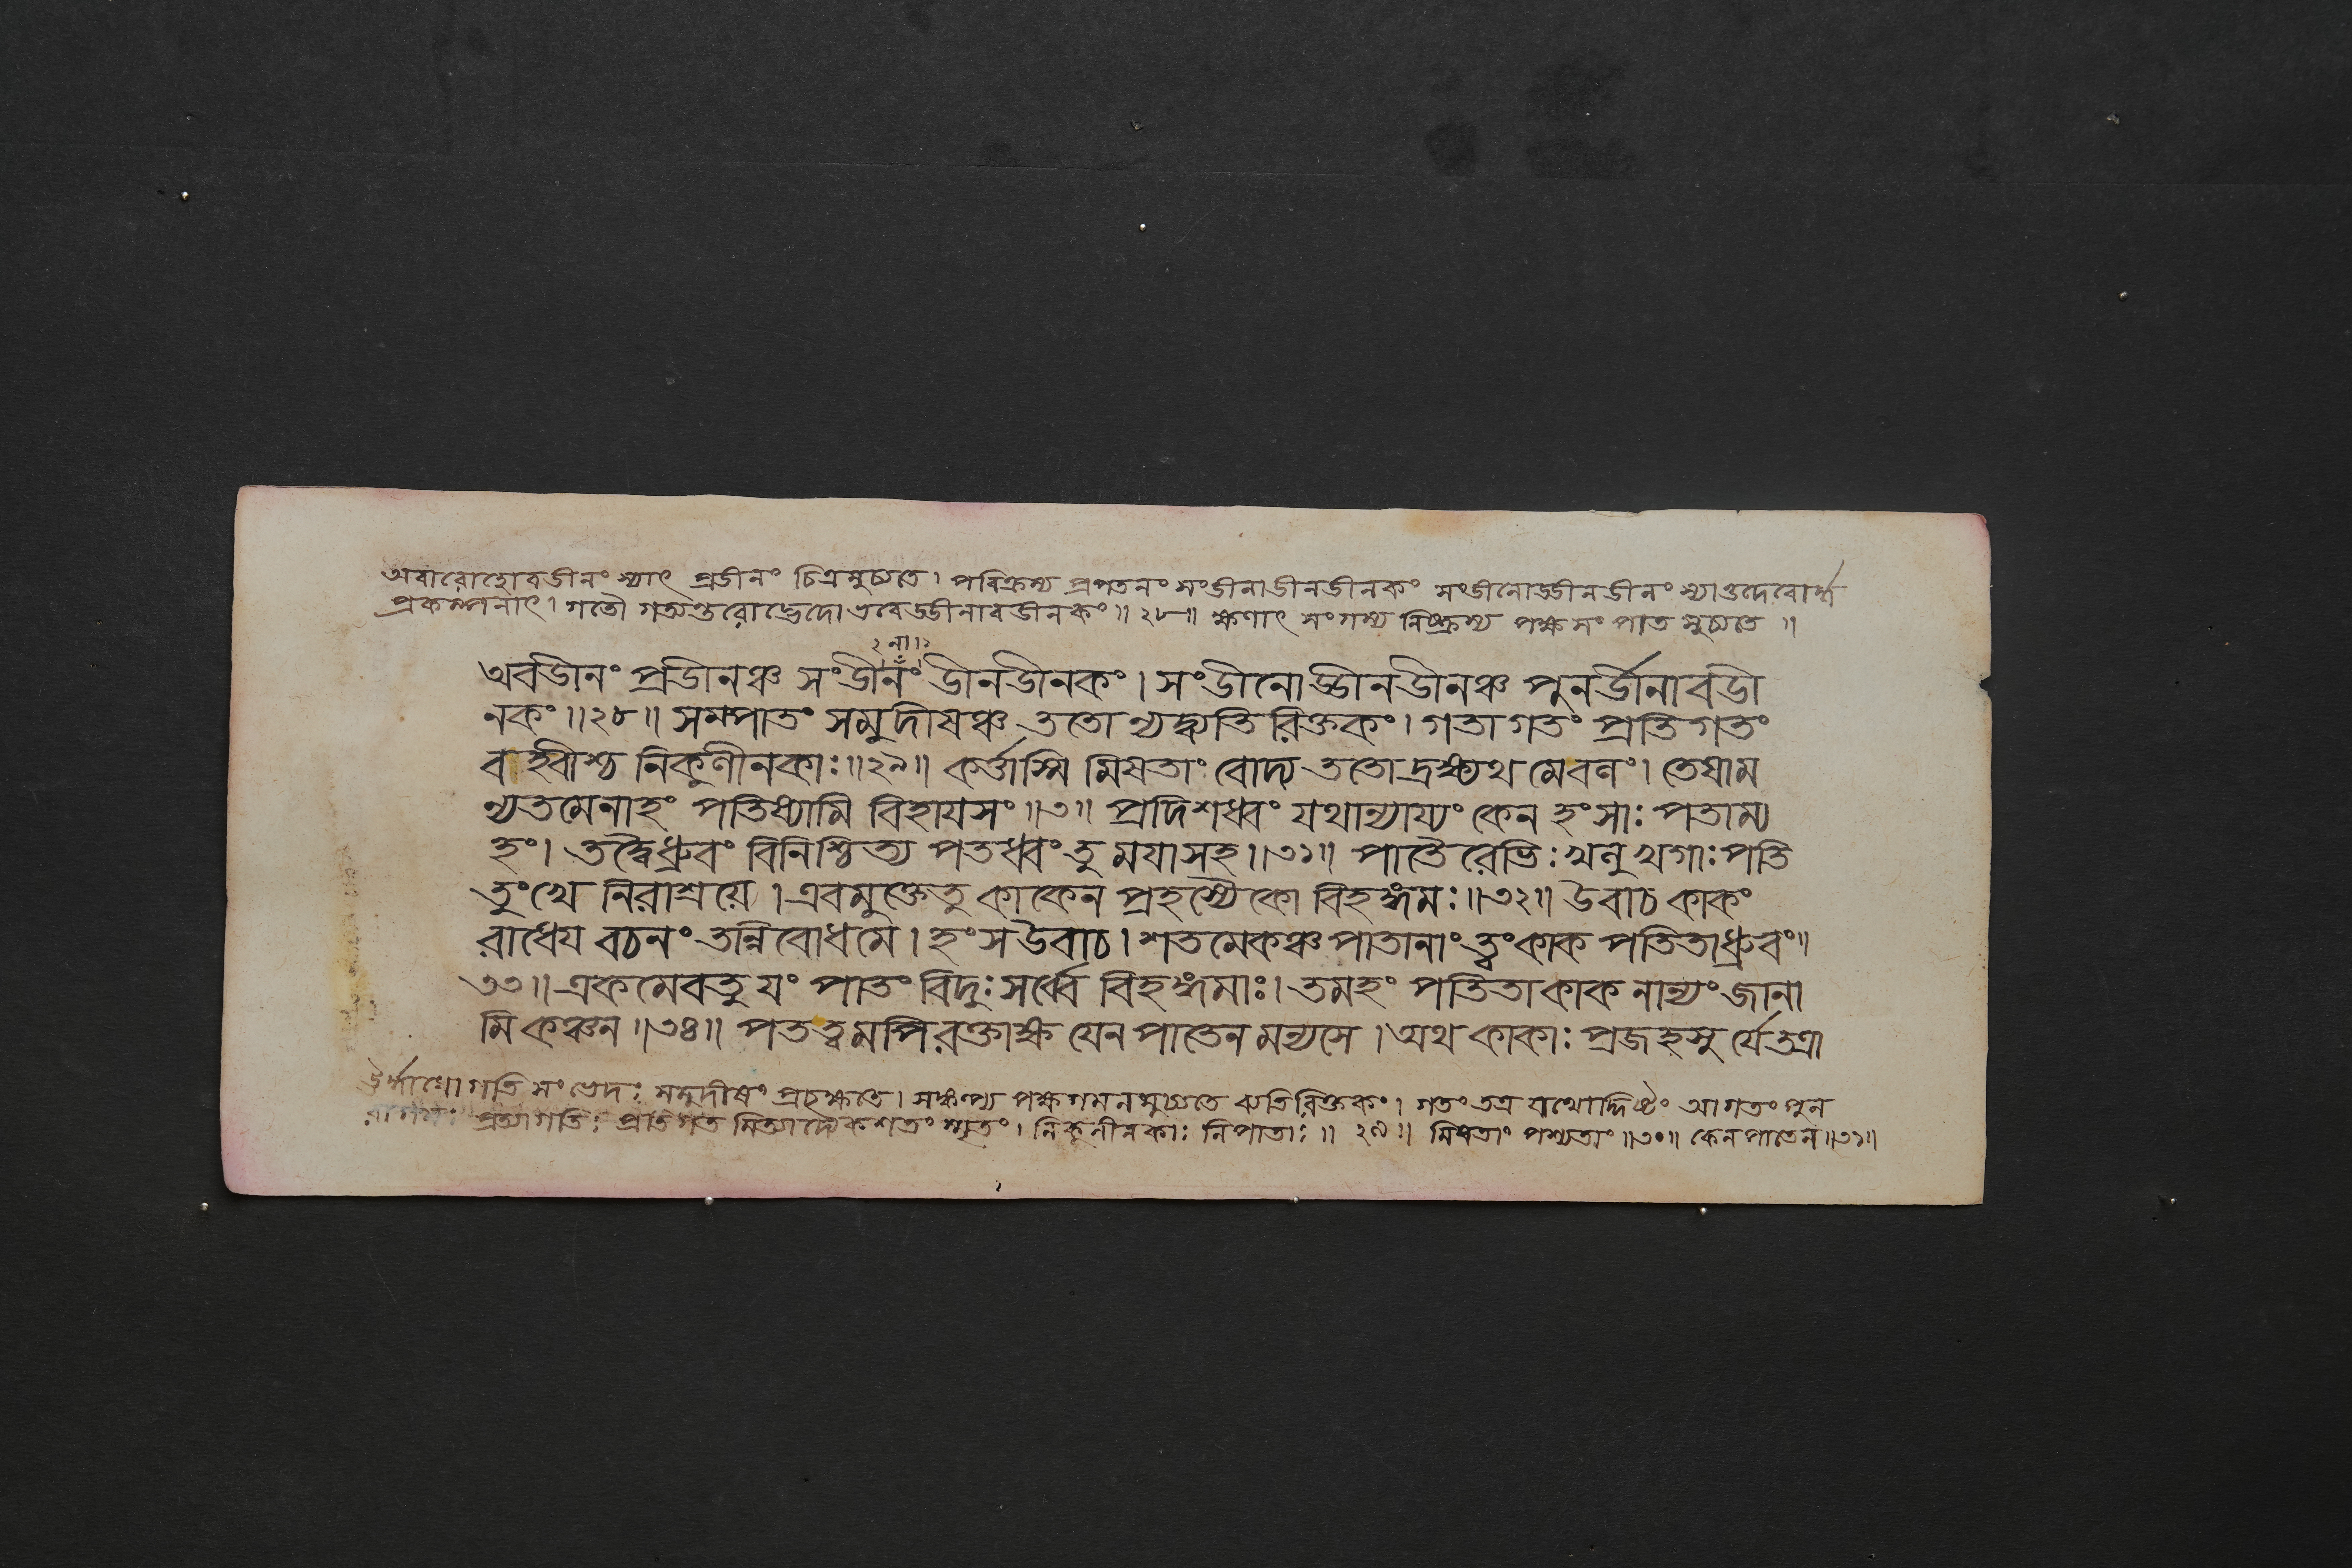 অবারোহোবডীনং স্যাৎ প্রডীনং চিত্রমুচ্যতে। পরিক্রম্য প্রপতনং সংডীনাডীনডীনকং সংডীনোড্ডীনডীনং স্যাত্তদেবোর্ধ্ব
প্রকম্পনাৎ। গতৌ গত্যন্তরোদ্ভেদো এবেড্ডীনাবডীনকং॥২৮॥ ক্ষণাৎ সংগম্য নিষ্ক্রম্য পক্ষসংপাত মুচ্যতে॥
২না॥২
অবডীনং প্রডীনঞ্চ সংডীনং ডীনডীনকং। সংডীনোড্ডীনডীনঞ্চ পুনর্ডীনাবডী
নকং॥২৮॥ সমপাতং সমুদীষঞ্চ ততো ন্যদ্ব্যতিরিক্তকং। গতাগতং প্রতিগতং
বহ্বীশ্চ নিকুণীনকাঃ॥২৯॥ কর্ত্তাস্মি মিষতাং বোদ্য ততোদ্রক্ষ্যথ মেবলং। তেষাম
ন্যতমেনাহং পতিষ্যামি বিহায়সং॥৩॥ প্রদিশধ্বং যথান্যায্যং কেন হংসাঃ পতাম্য
হং। তদ্বৈধ্রুবং বিনিশ্চিত্য পতধ্বং তু ময়াসহ॥৩১॥ পাতৈরেভিঃ খলু খগাঃ পতি
তুংখে নিরাশ্রয়ে। এবমুক্তেতু কাকেন প্রহস্যৈকো বিহঙ্গমঃ॥৩২॥ উবাচ কাকং
রাধেয় বচনং তন্নিবোধমে। হংস উবাচ। শতমেকঞ্চ পাতানাং ত্বংকাক পতিতাধ্রুবং॥
৩৩॥ একমেবতু যং পাতং বিদুঃ সর্ব্বে বিহঙ্গমাঃ। তমহং পতিতা কাক নান্যং জানা
মি কঞ্চন॥৩৪॥ পতত্বমপি রক্তাক্ষ যেন পাতেন মন্যসে। অথ কাকাঃ প্রজহসু র্যেতত্রা
গতি সংভেদঃ সমুদীষং প্রচক্ষতে। সঙ্কল্প্য পক্ষগমনমুচ্যতে ব্যতিরিক্তকং। গতং তত্র যথোদ্দিষ্টং আগতং পুন
রাগমঃ প্রত্যাগতিঃ প্রতিগত মিত্যাদ্যেকশতং স্মৃতং। নিকুনীনকাঃ নিপাতাঃ॥২৯॥ মিষতাং পশ্যতাং॥৩০॥ কেনপাতেন॥৩১॥